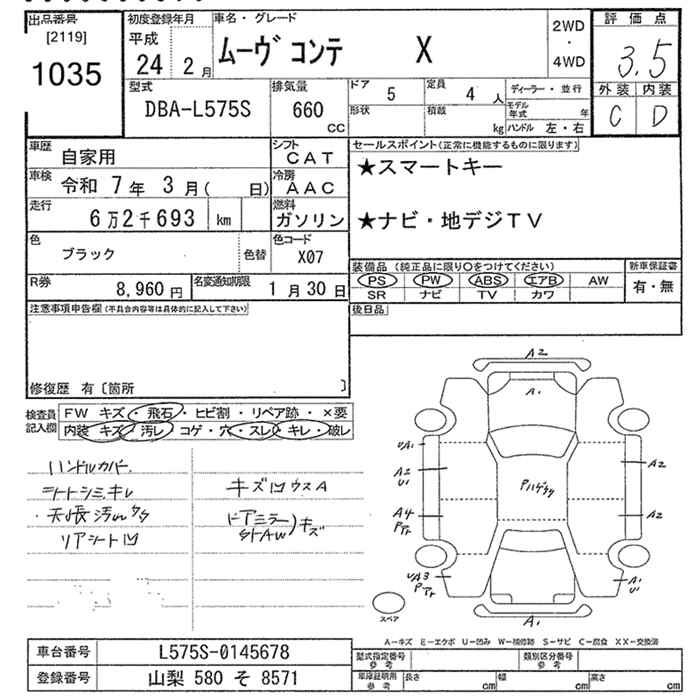 出品番号
[2119]
1035
初度登録年月
平成
24 2月
車名・グレード
ムーヴ コンテ X
2WD
・
4WD
評価点
3.5
外装 内装
C D
型式
DBA-L575S
排気量
660
CC
ドア 5 定員 4 人
形状 積載 kg
ディーラー・並行
モデル年式 年
ハンドル 左・右
車歴 自家用
シフト CAT
車検 令和 7年 3月( 日)
冷房 AAC
走行 6万2千693 km
燃料 ガソリン
色 ブラック 色替
色コード X07
R券 8,960円
名変通知期限 1月30日
セールスポイント(正常に機能するものに限ります)
★スマートキー
★ナビ・地デジTV
装備品(純正品に限り○をつけてください)
PS PW ABS エアB AW
SR ナビ TV カワ
新車保証書
有・無
後日品
注意事項申告欄(不具合内容等は具体的に記入して下さい)
修復歴 有〔箇所 〕
検査員記入欄
FW キズ・飛石・ヒビ割・リペア跡・×要
内装 キズ・汚レ・コゲ・穴・スレ・キレ・破レ
ハンドルカバー
シートシミキレ
天張汚レ
リアシート凹
キズ凹ウスA
ドアミラー
キズ
A2
A1
UA1
A2
U1
A2
A4
A2
UA3
A1
U1
A1
スペア
A-キズ E-エクボ U-凹み W-補修跡 S-サビ C-腐食 XX-交換済
車台番号 L575S-0145678
登録番号 山梨 580 そ 8571
型式指定番号 参考
類別区分番号 参考
車庫証明用 参考
長さ cm 幅 cm 高さ cm